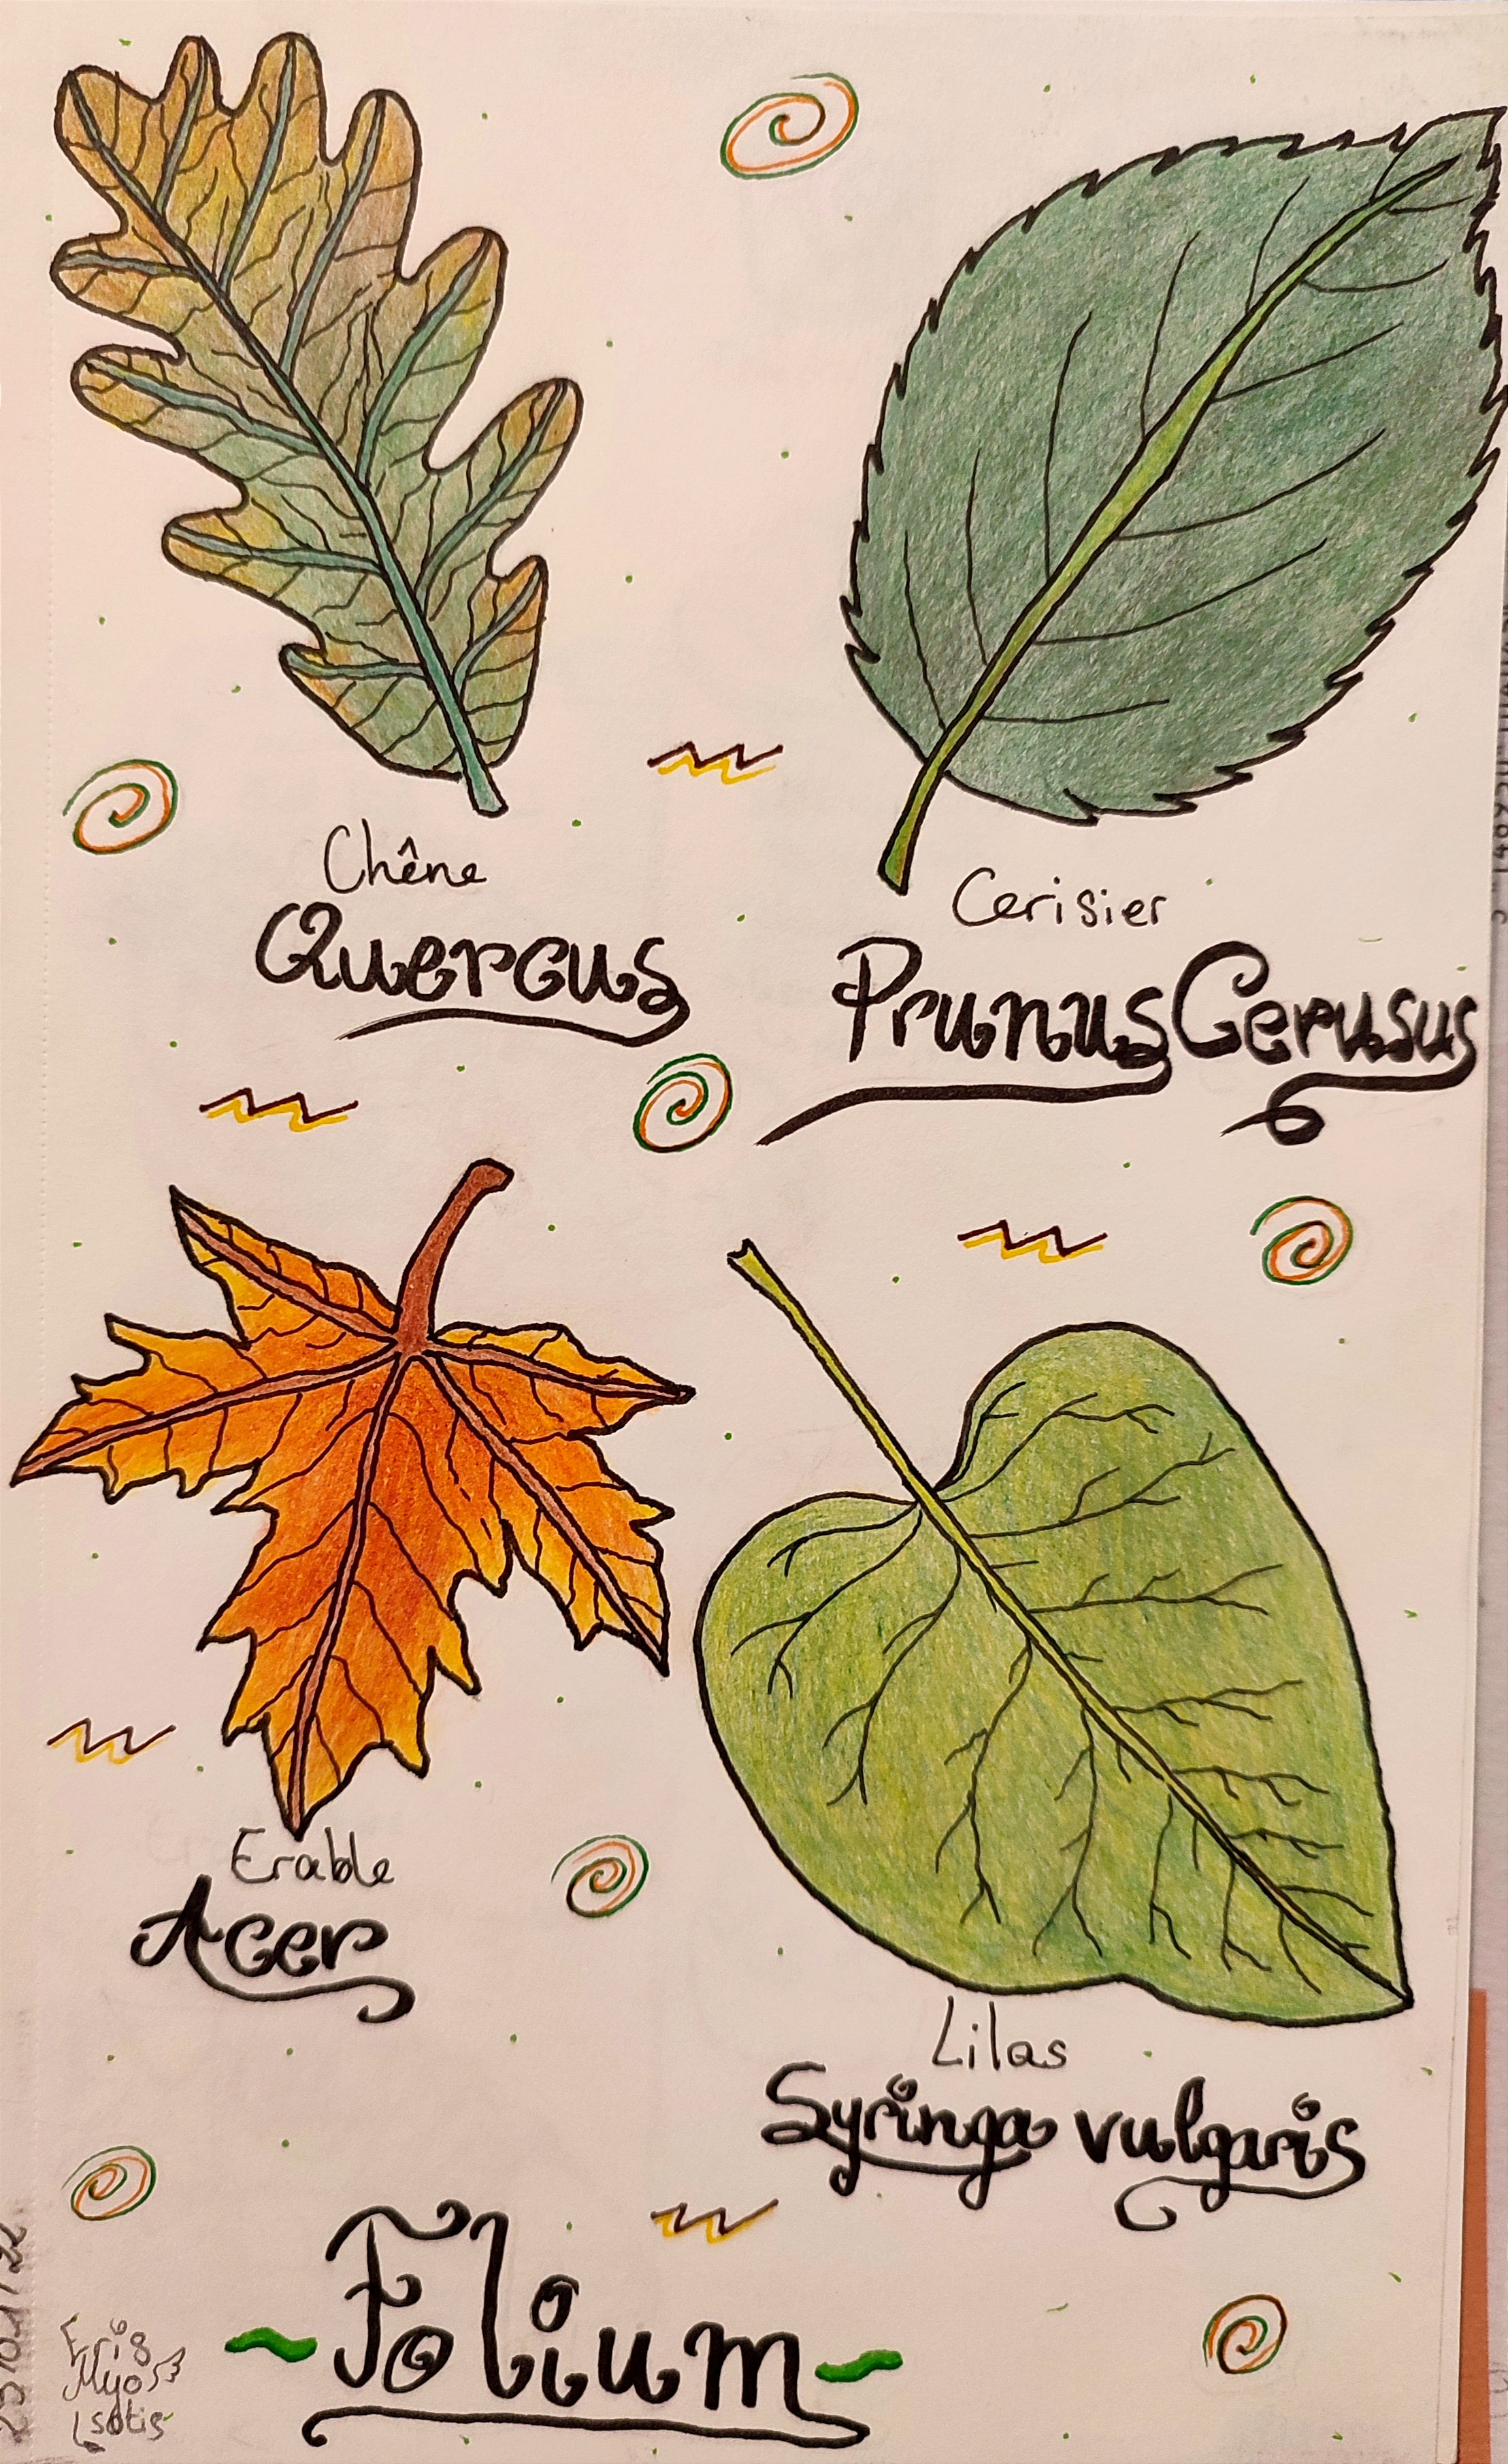 Chêne
Quercus
Cerisier
Prunus Cerusus
Erable
Acer
Lilas
Syringa vulgaris
~Folium~
Eris
Myo
sotis